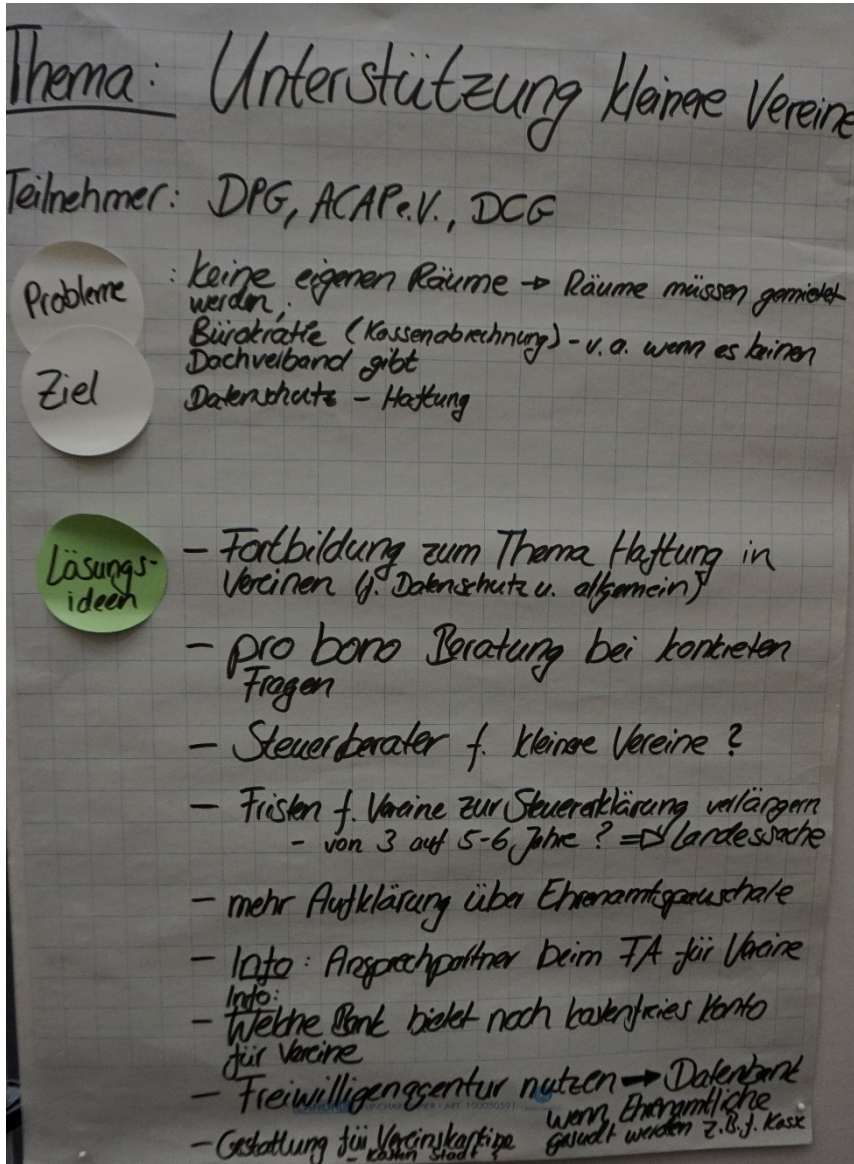 Thema: Unterstützung kleinere Vereine
Teilnehmer: DPG, ACAP e.V., DCG
Probleme
Ziel
: keine eigenen Räume → Räume müssen gemietet
werden;
Bürokratie (Kassenabrechnung) - v.a. wenn es keinen
Dachverband gibt
Datenschutz - Haftung
Lösungs-
ideen
- Fortbildung zum Thema Haftung in
Vereinen (z. Datenschutz u. allgemein)
- pro bono Beratung bei konkreten
Fragen
- Steuerberater f. kleinere Vereine ?
- Fristen f. Vereine zur Steuererklärung verlängern
- von 3 auf 5-6 Jahre ? ⇒ Landessache
- mehr Aufklärung über Ehrenamtspauschale
- Info: Ansprechpartner beim FA für Vereine
Info:
- Welche Bank bietet noch kostenfreies Konto
für Vereine
- Freiwilligenagentur nutzen → Datenbank
wenn Ehrenamtliche
gesucht werden z.B. f. Kasse
- Gestattung für Vereinskantine
- Kosten Stadt ?